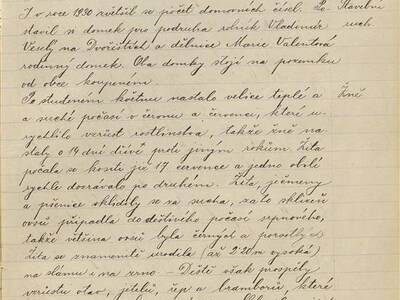 I v roce 1930 zvětšil se počet domovních čísel. Po- Stavební
stavil v domek pro podruha rolník Vladimír ruch.
Veselý na Dvořištích a dělnice Marie Valentová
rodinný domek. Oba domky stojí na pozemku
od obce koupeném.
Po studeném květnu nastalo velice teplé a Žně
a suché počasí v červnu a červenci, které u-
rychlilo vzrůst rostlinstva, takže žně na-
staly o 14 dní dříve proti jiným rokům. Žita
počala se kositi již 17 července a jedno obilí
rychle dozrávalo po druhém. Žita, ječmeny
a pšenice sklidily se za sucha, za to sklizeň
ovsů připadla do deštivého počasí srpnového,
takže většina ovsů byla černých a porostlých
Žita se znamenitě urodila (až 2·20 m vysoká)
na slámu i na zrno – Deště však prospěly
vzrůstu otav, jetelů, řep a bramborů, které